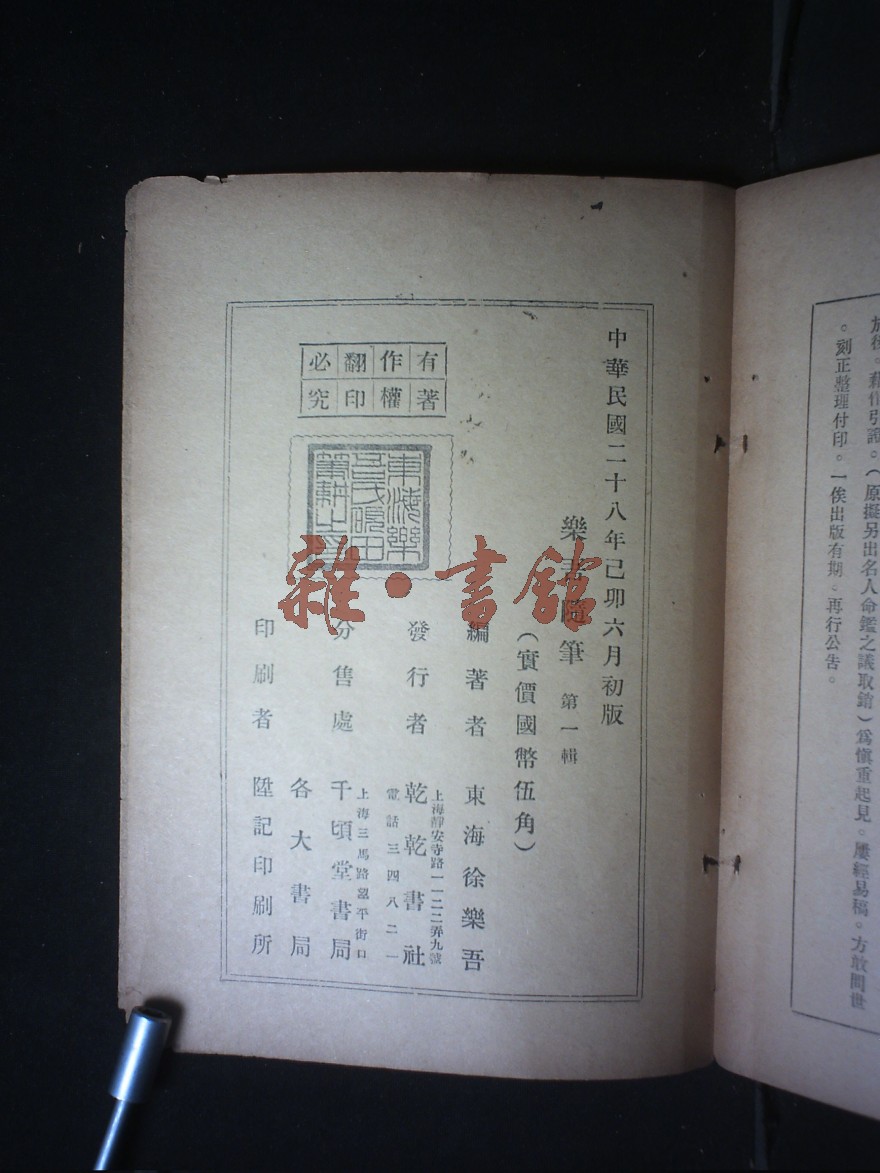 。刻正整理付印。一俟出版有期。再行公告。
(原擬另出名人命鑑之議取銷)爲愼重起見。屢經易稿。方敢問世
中華民國二十八年己卯六月初版
樂吾隨筆 第一輯
(實價國幣伍角)
編著者 東海徐樂吾
上海靜安寺路一一二二弄九號
發行者 乾乾書社
電話三四八二一
上海三馬路望平街口
分售處 千頃堂書局
各大書局
印刷者 陞記印刷所
有著
作權
翻印
必究
東海樂
吾氏硯田
筆耕之章
雜·書館